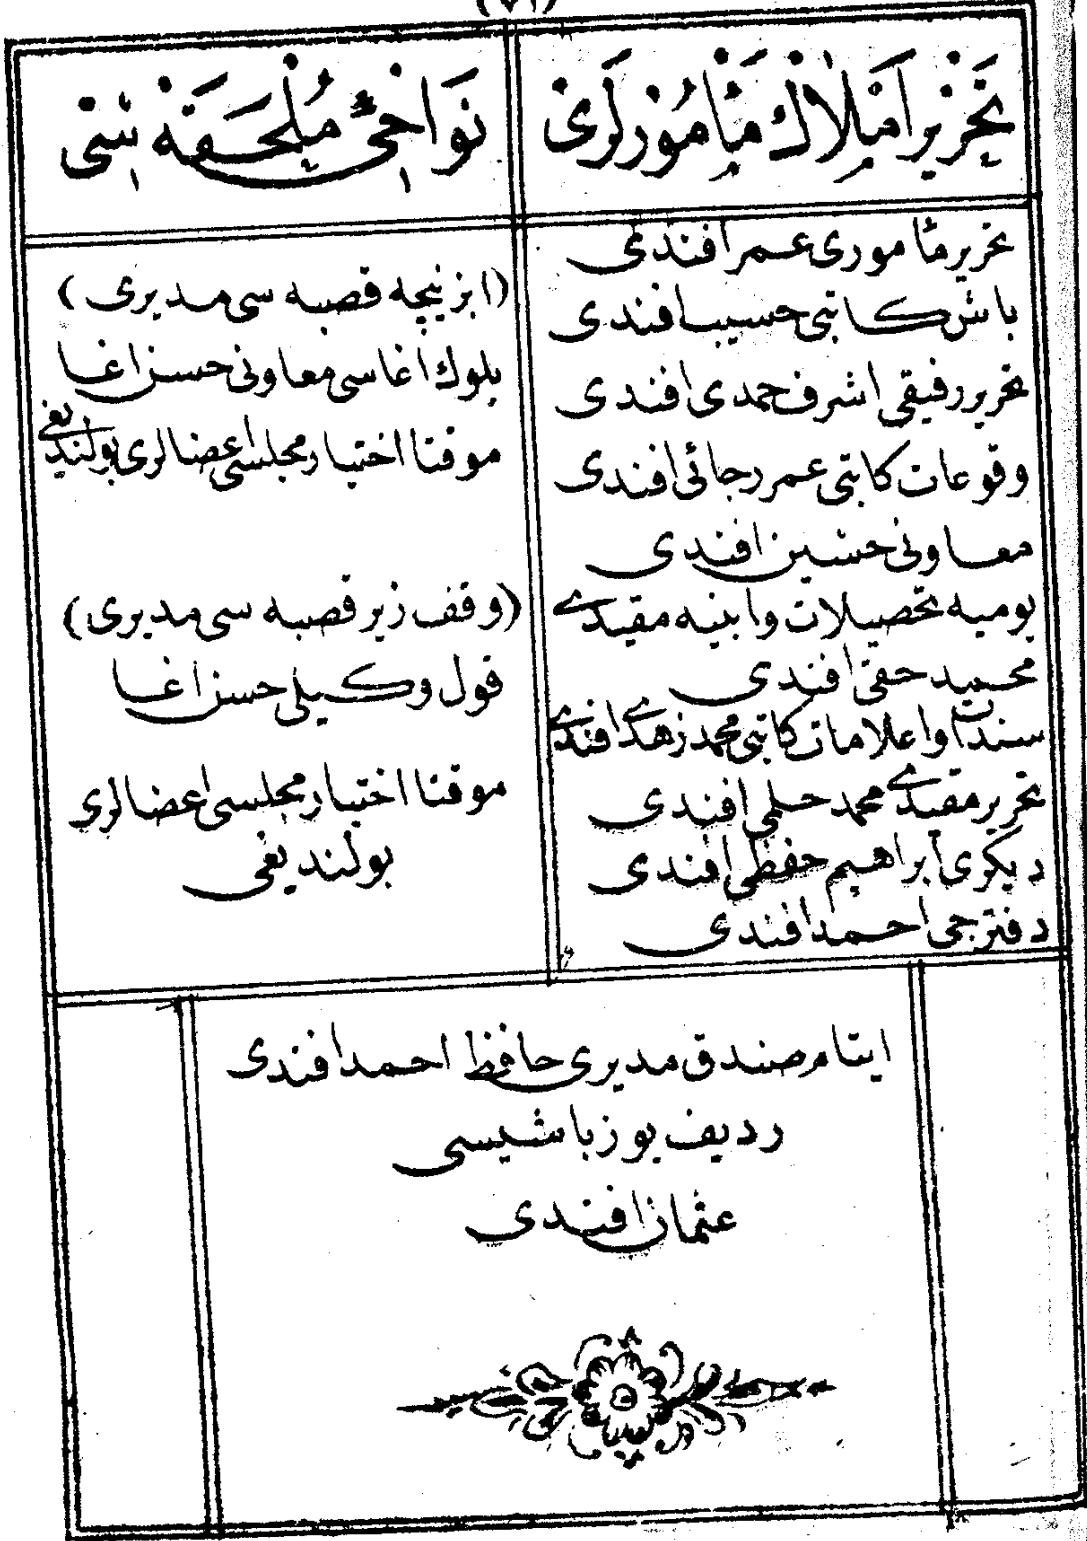 تحرير املاك مأمورلرى
تحرير مأمورى عمر افندى
باش كاتبى حسيب افندى
تحرير رفيقى اشرف حمدى افندى
وقوعات كاتبى عمر رجائى افندى
معاونى حسين افندى
يوميه تحصيلات وابنيه مقيدى
محمد حقى افندى
سندات واعلامات كاتبى محمد زهدى افندى
تحرير مقيدى محمد حلمى افندى
ديكرى ابراهيم حفظى افندى
دفترجى احمد افندى
نواحىء ملحقه سى
(ابزنيچه قصبه سى مديرى)
بلوك اغاسى معاونى حسن اغا
موقتا اختيار مجلسى اعضالرى بولنديغى
(وقف زير قصبه سى مديرى)
قول وكيلى حسن اغا
موقتا اختيار مجلسى اعضالرى
بولنديغى
ايتام صندق مديرى حافظ احمد افندى
رديف يوزباشيسى
عثمان افندى